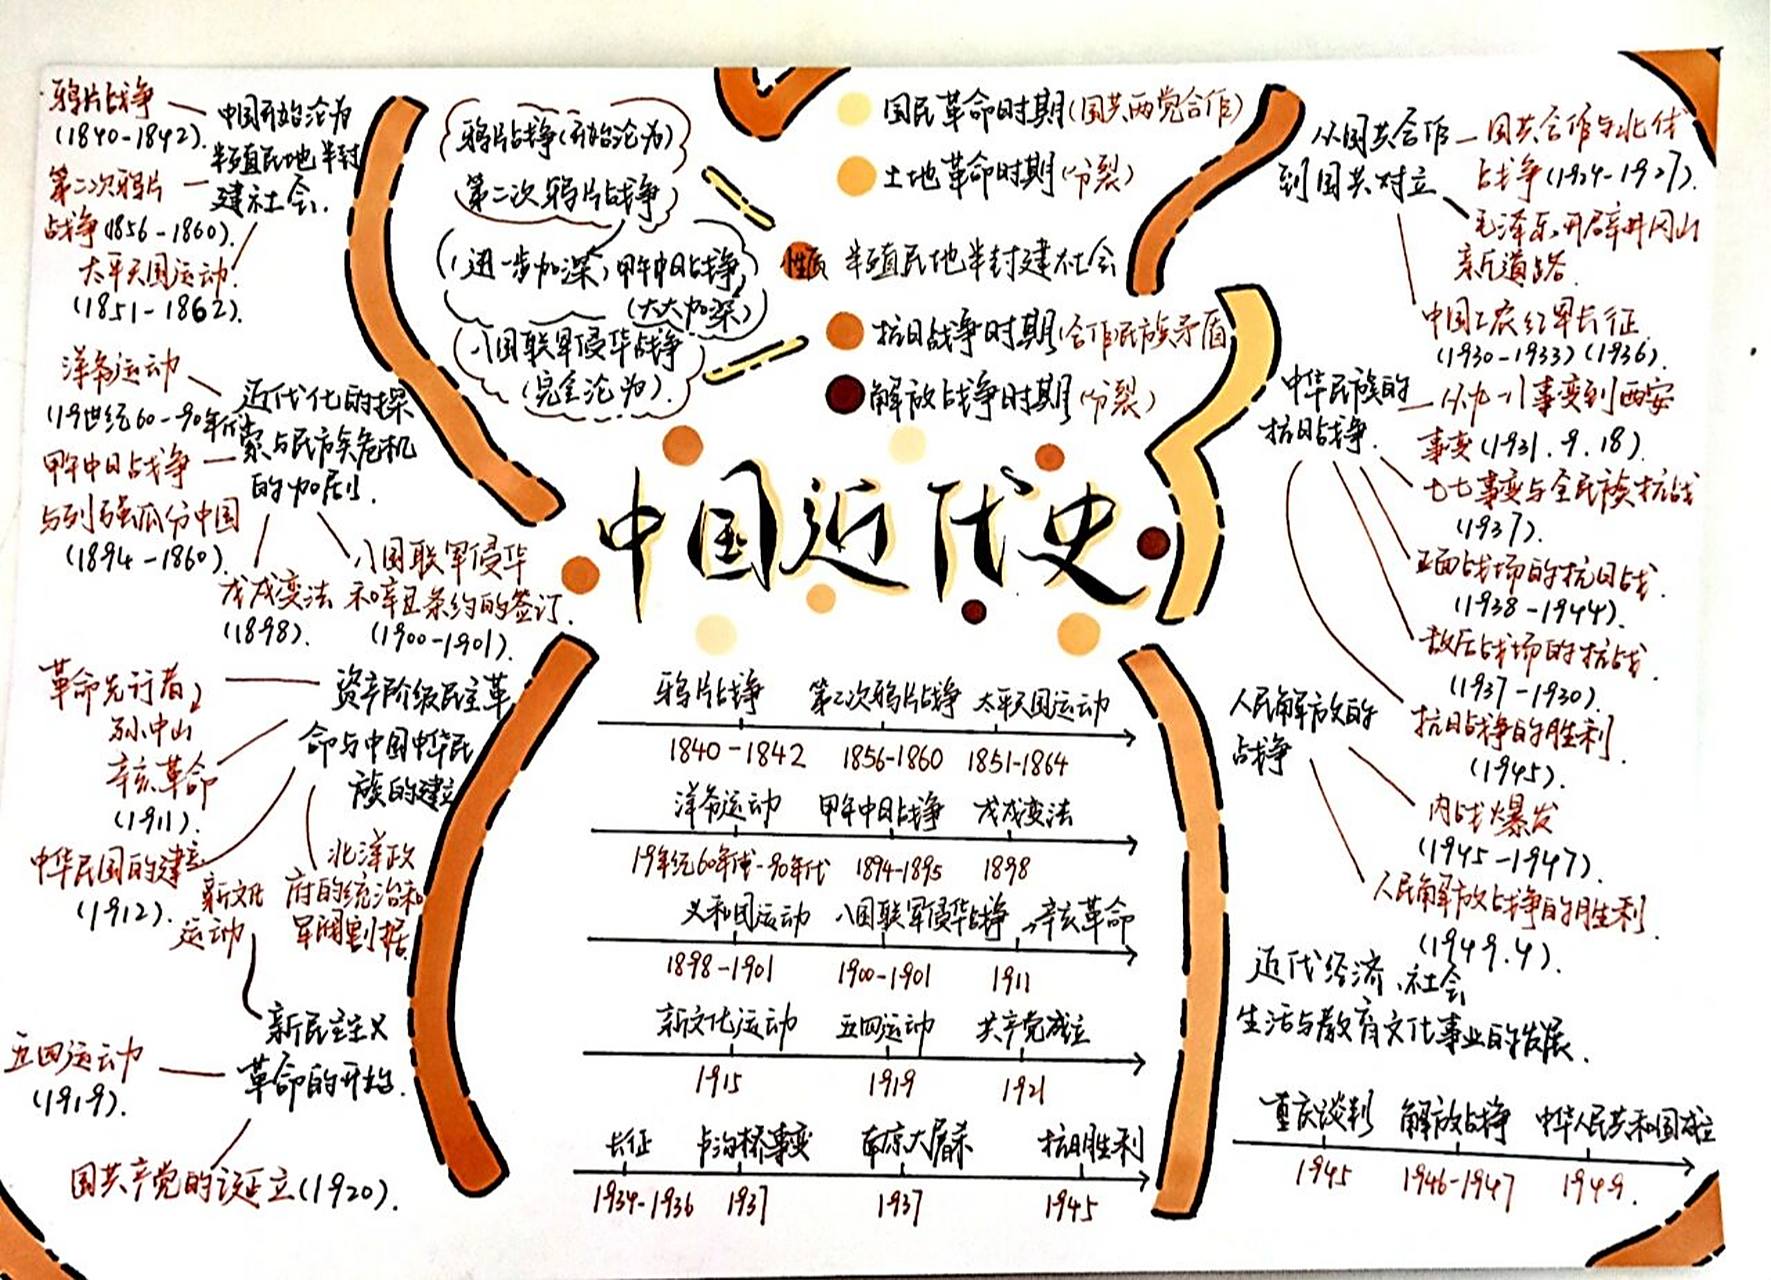 鸦片战争
(1840-1842).
中国开始沦为
半殖民地半封
建社会.
第二次鸦片
战争(1856-1860).
太平天国运动.
(1851-1862).
洋务运动
(19世纪60-90年代
近代化的探
索与民族危机
的加剧.
甲午中日战争
与列强瓜分中国
(1894-1860).
戊戌变法
(1898).
八国联军侵华
和辛丑条约的签订.
(1900-1901).
革命先行者,
孙中山
资产阶级民主革
命与中国中华民
族的建立
辛亥革命
(1911).
中华民国的建立
(1912).
北洋政
府的统治和
军阀割据.
新文化
运动
新民主主义
革命的开始.
五四运动
(1919).
国共产党的诞立(1920).
鸦片战争(开始沦为)
第二次鸦片战争
(进一步加深)甲午中日战争
(大大加深)
八国联军侵华战争
(完全沦为).
国民革命时期(国共两党合作)
土地革命时期(分裂)
性质 半殖民地半封建社会
抗日战争时期(合作民族矛盾
解放战争时期(分裂)
中国近代史
鸦片战争 第二次鸦片战争 太平天国运动
1840-1842 1856-1860 1851-1864
洋务运动 甲午中日战争 戊戌变法
19年纪60年代-90年代 1894-1895 1898
义和团运动 八国联军侵华战争 辛亥革命
1898-1901 1900-1901 1911
新文化运动 五四运动 共产党成立
1915 1919 1921
长征 卢沟桥事变 南京大屠杀 抗日胜利
1934-1936 1937 1937 1945
从国共合作
到国共对立
国共合作与北伐
战争(1924-1927).
毛泽东开辟井冈山
新道路.
中国工农红军长征.
(1930-1933)(1936).
中华民族的
抗日战争.
从九一八事变到西安
事变(1931.9.18).
七七事变与全民族抗战
(1937)
正面战场的抗日战.
(1938-1944)
敌后战场的抗战.
(1937-1930).
抗日战争的胜利.
(1945).
人民解放的
战争
内战爆发
(1945-1947).
人民解放战争的胜利.
(1949.4).
近代经济、社会
生活与教育文化事业的发展.
重庆谈判 解放战争 中华人民共和国成立
1945 1946-1947 1949.